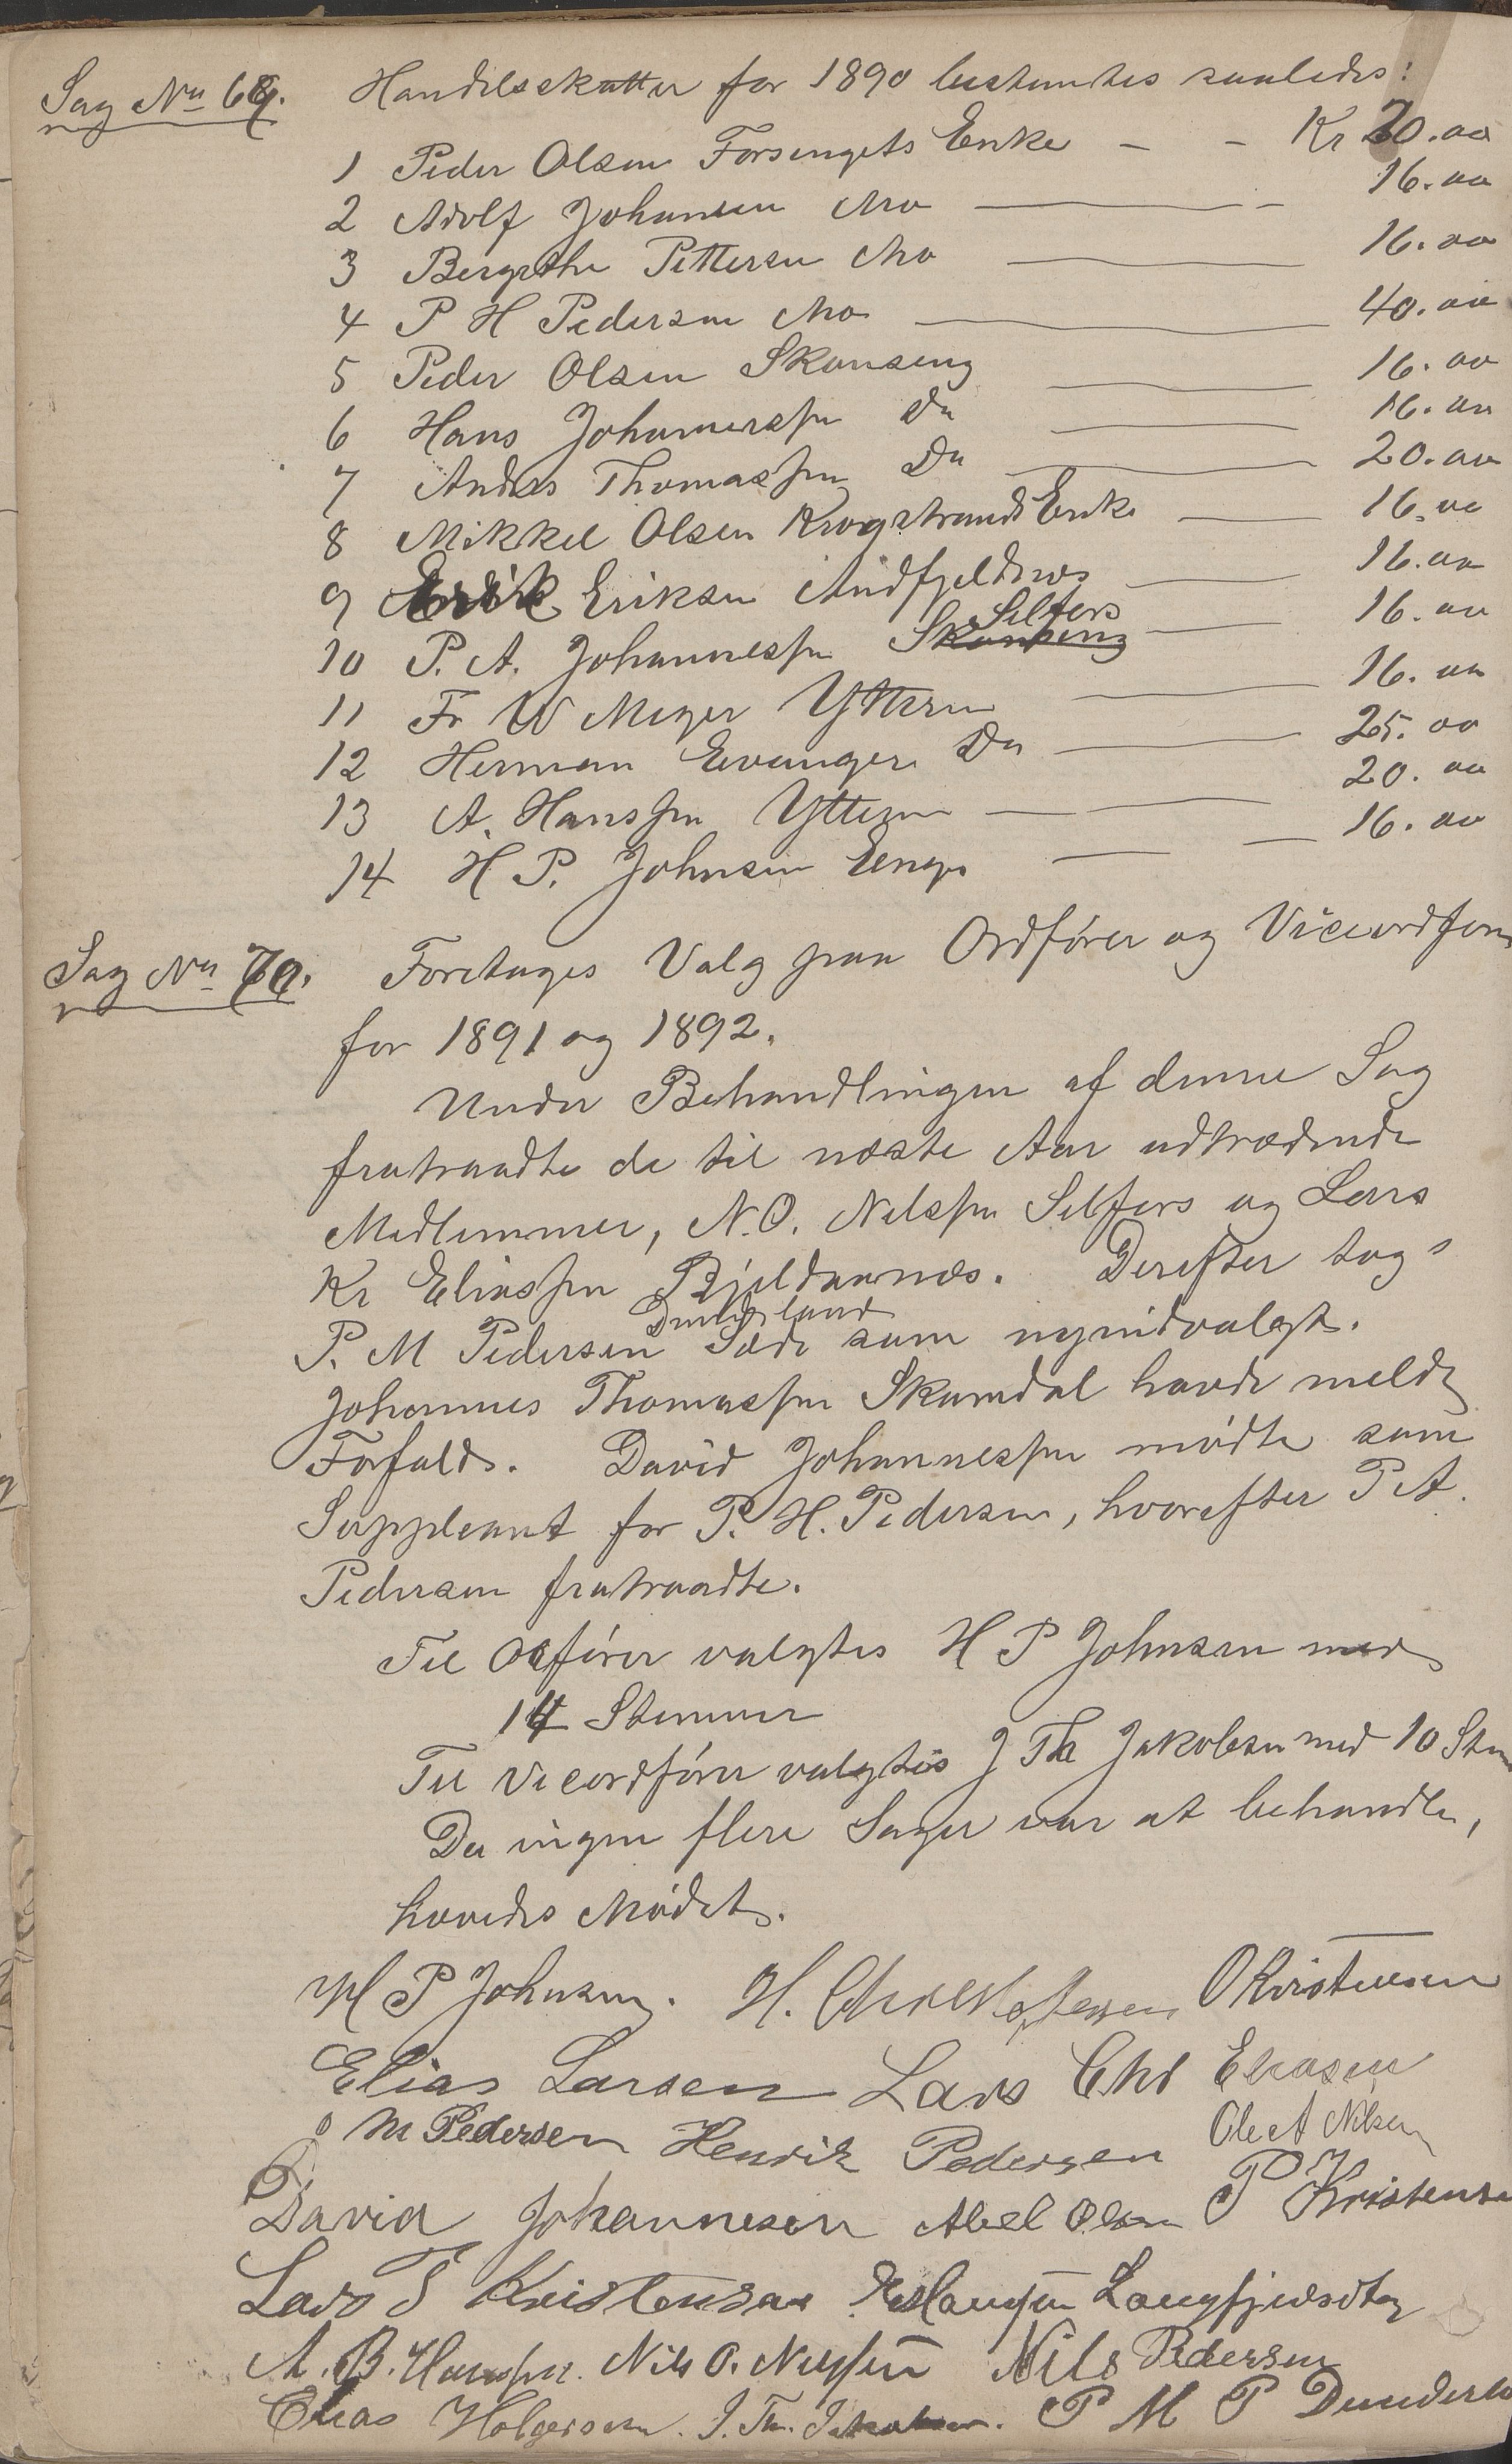 Sag No 69. Handelsskatten for 1890 bestemtes saaledes:
1 Peder Olsen Forsengets Enke - - Kr 20.00
2 Adolf Johansen Mo 16.00
3 Bergithe Pettersen Mo 16.00
4 P H Pedersen Mo 40.00
5 Peder Olsen Skonseng 16.00
6 Hans Johannessen Do 16.00
7 Anders Thomassen Do 20.00
8 Mikkel Olsen Krogstrands Enke 16.00
9 Erik Eriksen Andfjeldnes 16.00
10 P. A. Johannessen Selfors 16.00
11 Fr W Meyer Ytteren 16.00
12 Herman Evanger Do 25.00
13 A. Hanssen Ytteren 20.00
14 H P. Johnsen Enge 16.00
Sag No 70. Foretages Valg paa Ordfører og Viceordfører
for 1891 og 1892.
Under Behandlingen af denne Sag
fratraadte de til næste Aar udtrædende
Medlemmer, N.O. Nilssen Selfors og Lars
Kr Eliassen Bjeldaanæs. Derefter tog
P. M Pedersen Dunderland Sæde som nyindvalgt.
Johannes Thomassen Skamdal havde meldt
Forfald. David Johannessen mødte som
Suppleant for P. H. Pedersen, hvorefter P A.
Pedersen fratraadte.
Til Ordfører valgtes H P Johnsen med
14 Stemmer
Til Viceordfører valgtes J Th Jakobsen med 10 Stem
Da ingen flere Sager var at behandle,
hævedes Mødet.
H P Johnsen. H. Christoffersen O Kristensen
Elias Larsen Lars Chr Eliasen
M Pedersen Henrik Pedersen Ole A Nilsen
David Johannesen Abel Olsen P Kristensen
Lars T Kristensen Hansen Langfjeld
A. B. Hanssen. Nils O. Nilssen Nils Pedersen
Elias Holgersen. J. Th. Jakobsen. P M P Dunderla